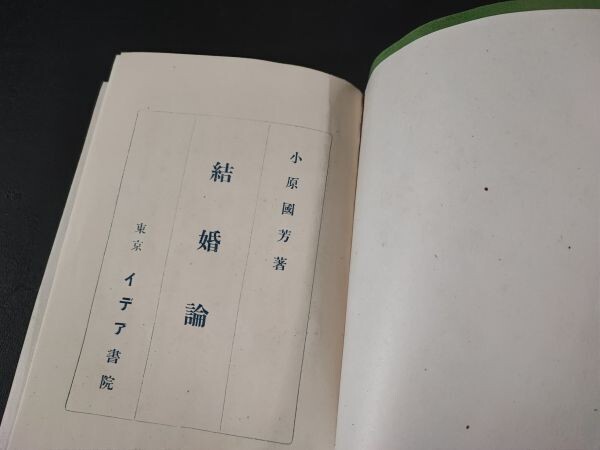 小原國芳著
結婚論
東京 イデア書院